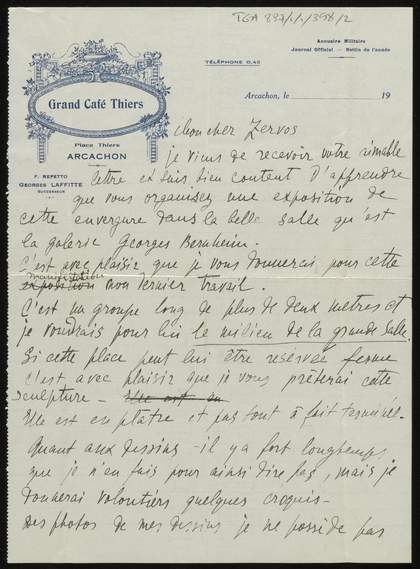 TGA 898/1/1/398/2
Annuaire Militaire
Journal Officiel - Bottin de l'année
TÉLÉPHONE 0.43
Grand Café Thiers
Place Thiers
ARCACHON
F. REPETTO
GEORGES LAFFITTE
SUCCESSEUR
Arcachon, le 19
Mon cher Zervos
je viens de recevoir votre aimable
lettre et suis bien content d'apprendre
que vous organisez une exposition de
cette envergure dans la belle salle qu'est
la galerie Georges Bernheim.
C'est avec plaisir que je vous donnerai pour cette
manifestation
exposition mon dernier travail.
C'est un groupe long de plus de deux metres et
je voudrais pour lui le milieu de la grande salle.
Si cette place peut lui être reservée
c'est avec plaisir que je vous prêterai cette
sculpture - Elle est en
Elle est en plâtre et pas tout à fait terminée.
Quant aux dessins - il y a fort longtemps
que je n'en fais pour ainsi dire pas, mais je
donnerai volontiers quelques croquis -
Des photos de mes dessins je ne possède pas